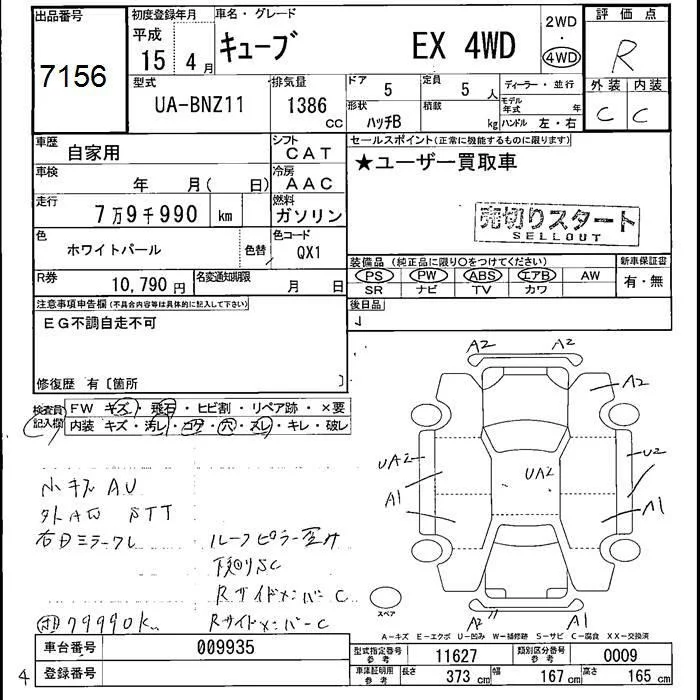 出品番号 初度登録年月 車名・グレード 2WD・4WD 評価点
7156 平成 15 4月 キューブ EX 4WD R
型式 排気量 ドア 定員 ディーラー・並行 外装 内装
UA-BNZ11 1386 CC 5 5人 C C
形状 積載 モデル年式 年
ハッチB kg ハンドル 左・右
車歴 自家用 シフト CAT セールスポイント(正常に機能するものに限ります)
★ユーザー買取車
車検 年 月( 日) 冷房 AAC
走行 7万9千990 km 燃料 ガソリン
売切りスタート
SELLOUT
色 ホワイトパール 色替 色コード QX1
装備品(純正品に限り○をつけてください) 新車保証書
PS PW ABS エアB AW 有・無
SR ナビ TV カワ
R券 10,790円 名変通知期限 月 日
後日品
注意事項申告欄(不具合内容等は具体的に記入して下さい)
EG不調自走不可
修復歴 有〔箇所 〕
検査員記入欄 FW キズ・飛石・ヒビ割・リペア跡・×要
内装 キズ・汚レ・コゲ・穴・スレ・キレ・破レ
A2 A2
A2
UA2 UA2 U2
A1 A1
A2 A1
小キズ A.U
右Dミラークレ
ルーフピラー歪み
下回りSC
RサイドメンバーC
RサイドメンバーC
79990K
スペア
A-キズ E-エクボ U-凹み W-補修跡 S-サビ C-腐食 XX-交換済
車台番号 009935 型式指定番号 参考 11627 類別区分番号 参考 0009
4 登録番号 車庫証明用 参考 長さ 373cm 幅 167cm 高さ 165cm